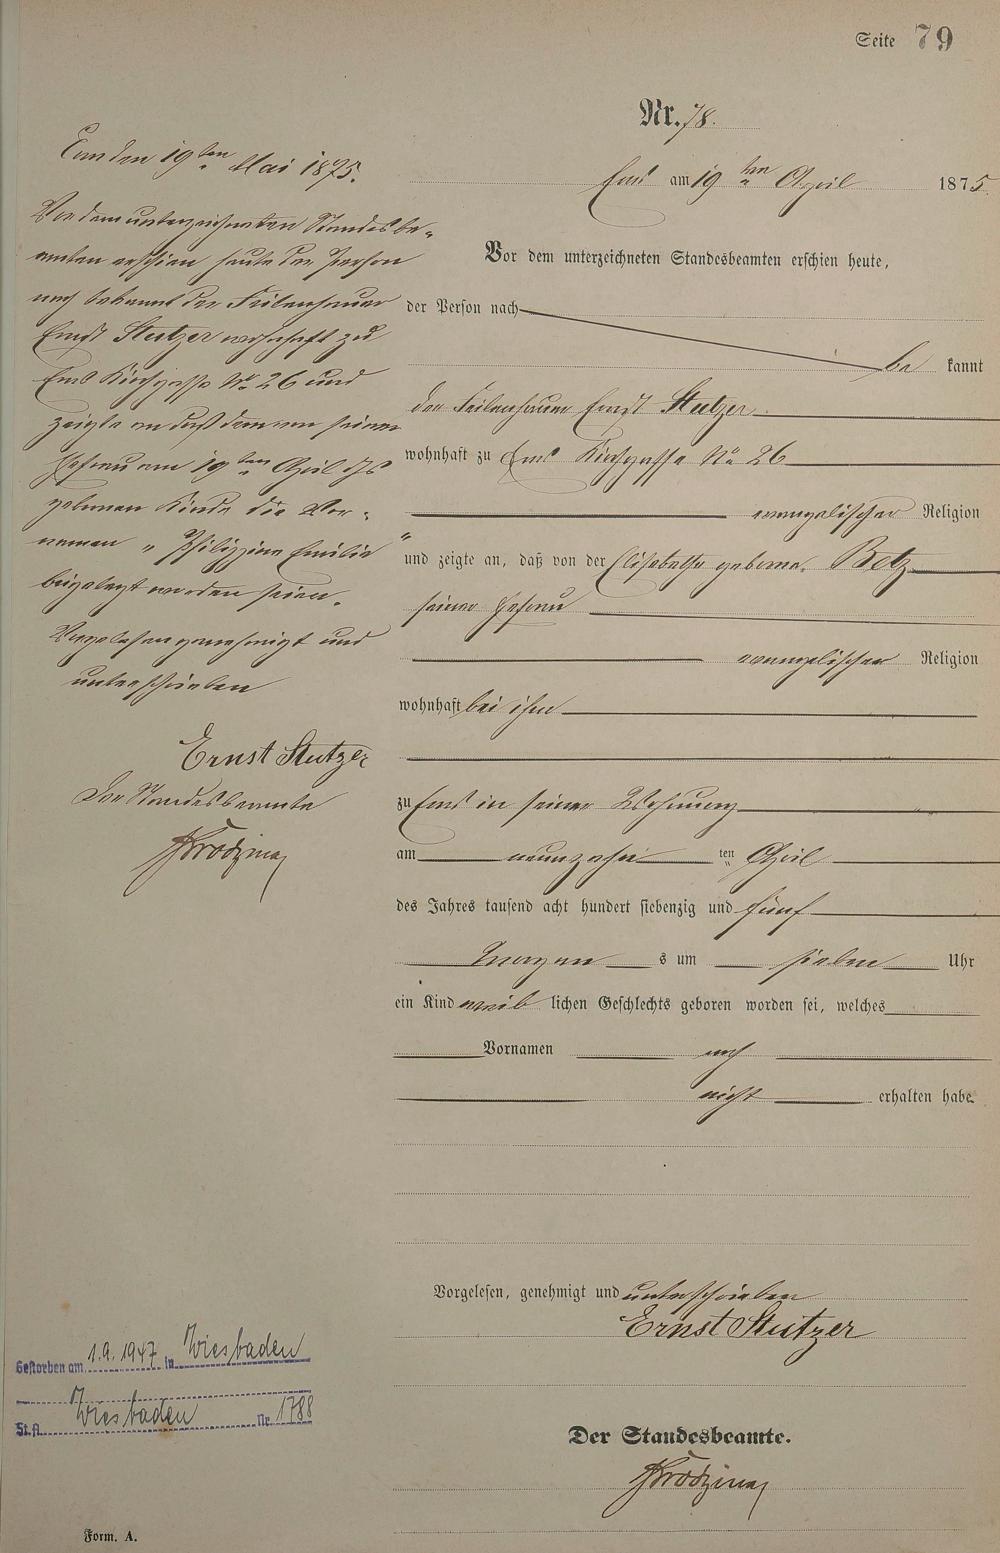 Seite 79
Nr. 78.
Ems den 19ten Mai 1875.
Vor dem unterzeichneten Standesbe-
amten erschien heute der Person
nach bekannt der Feilenhauer
Ernst Stutzer wohnhaft zu
Ems Kirchgasse No 26 und
zeigte an daß dem von seiner
Ehefrau am 19ten April d Js
geborenen Kinde die Vor-
namen „Philippine Emilie"
beigelegt worden seien.
Vorgelesen genehmigt und
unterschrieben
Ernst Stutzer
Der Standesbeamte
Ems am 19ten April 1875
Vor dem unterzeichneten Standesbeamten erschien heute,
der Person nach
be kannt
der Feilenhauer Ernst Stutzer
wohnhaft zu Ems Kirchgasse No 26
evangelischer Religion
und zeigte an, daß von der Elisabetha geborne Betz
seiner Ehefrau
evangelischer Religion
wohnhaft bei ihm
zu Ems in seiner Wohnung
am neunzehn ten April
des Jahres tausend acht hundert siebenzig und fünf
Morgen s um sieben Uhr
ein Kind weib lichen Geschlechts geboren worden sei, welches
Vornamen noch
nicht erhalten habe.
Vorgelesen, genehmigt und unterschrieben
Ernst Stutzer
Der Standesbeamte.
Gestorben am 1.9.1947 in Wiesbaden
St.A. Wiesbaden Nr. 1788
Form. A.